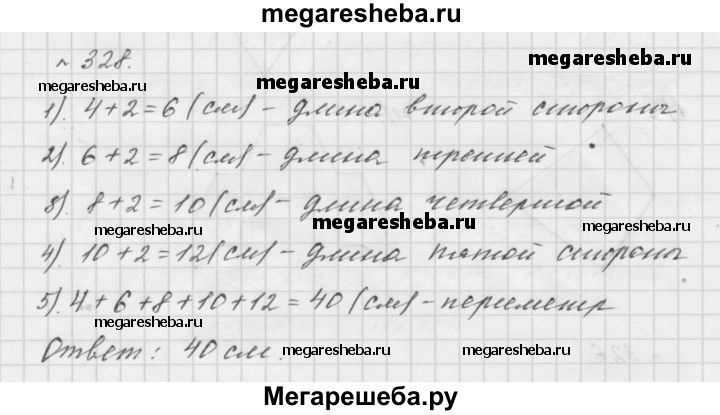 megaresheba.ru
№ 328.
megaresheba.ru
megaresheba.ru
1). 4+2=6 (см) - длина второй стороны
2). 6+2=8 (см) - длина третьей
3). 8+2=10 (см) - длина четвертой
megaresheba.ru
megaresheba.ru
4). 10+2=12 (см) - длина пятой стороны
5). 4+6+8+10+12=40 (см) - периметр
megaresheba.ru
Ответ: 40 см.
megaresheba.ru
megaresheba.ru
Мегарешеба.ру